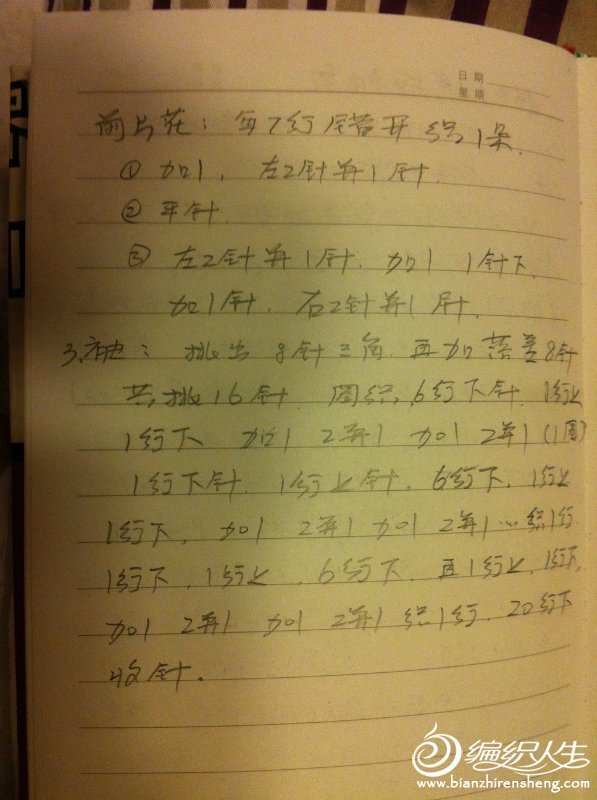 日期
星期
前片花：每7行错开织1朵.
① 加1，左2针并1针.
② 平针.
③ 左2针并1针. 加1 1针下,
加1针. 右2针并1针.
3、袖： 挑出8针三角 再加落差8针
共挑16针 圈织, 6行下针. 1行上
1行下 加1 2并1 加1 2并1 (1圈)
1行下针. 1行上针. 6行下. 1行上
1行下. 加1 2并1 加1 2并1…织1行.
1行下. 1行上. 6行下. 再1行上. 1行下,
加1 2并1 加1 2并1 织1行. 20行下
收针。
编织人生
www.bianzhirensheng.com